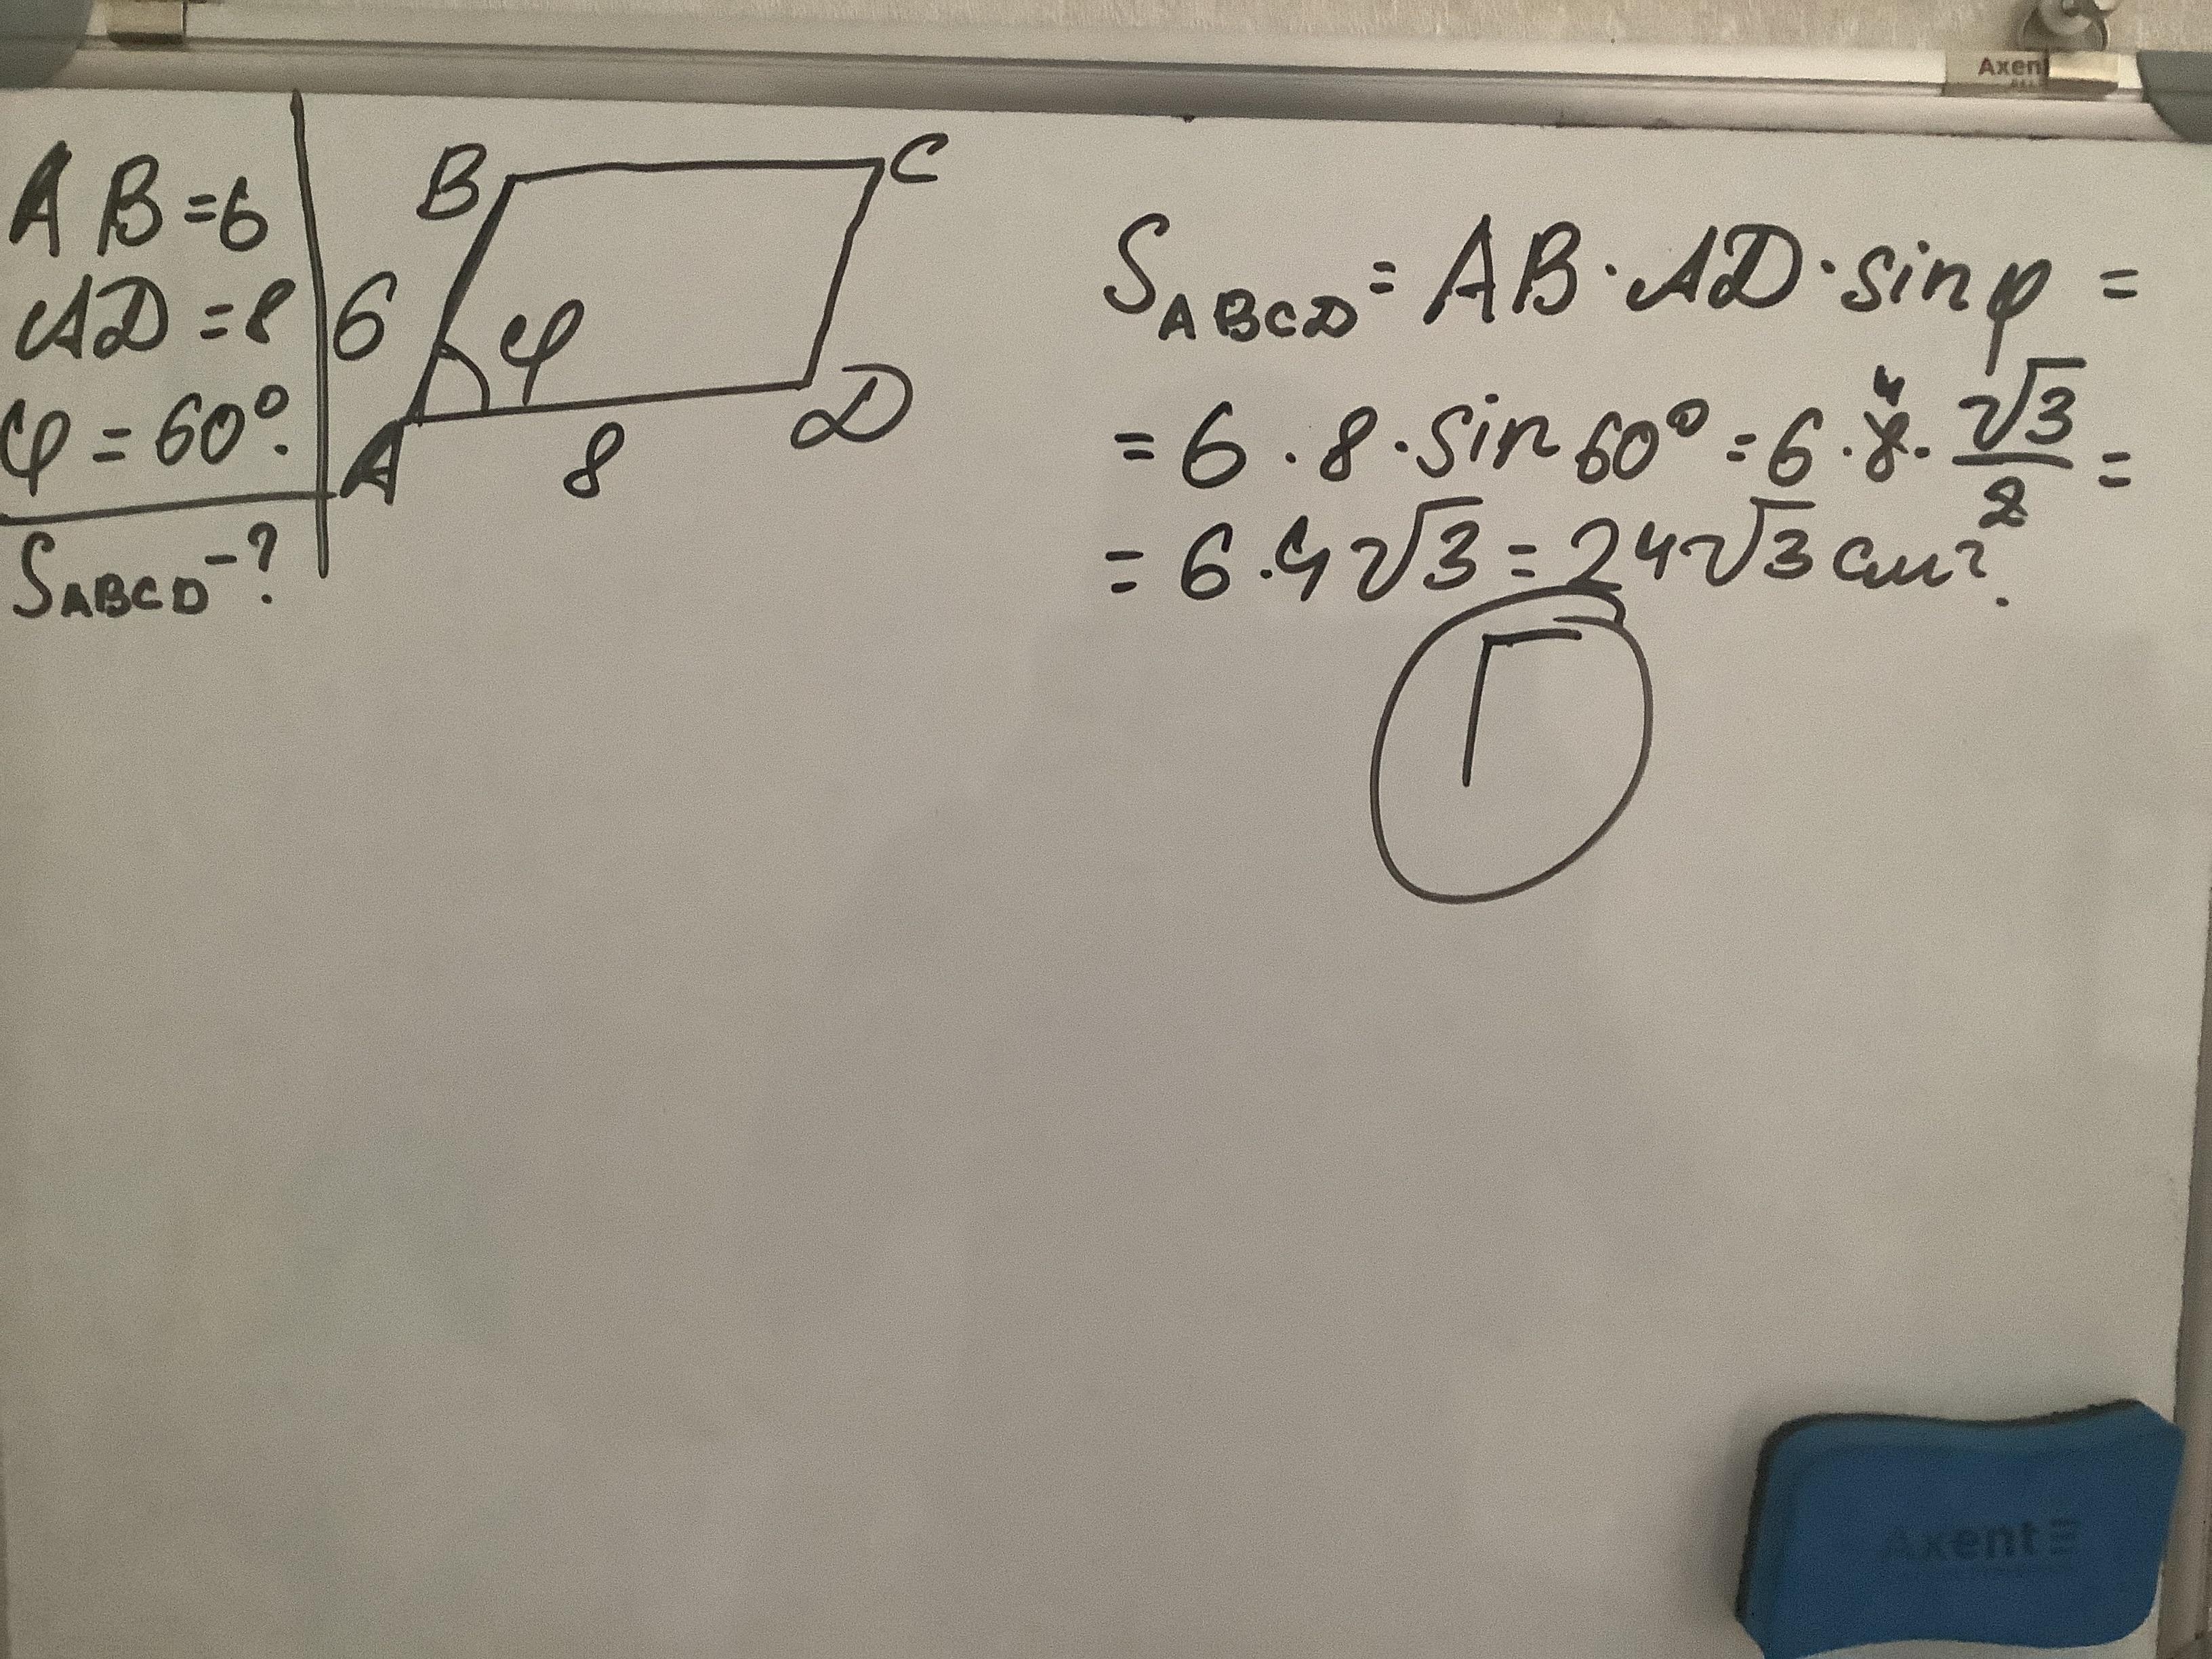 Axent
AB=6
AD=8
φ=60°.
S_ABCD-?
B
C
6
φ
A
8
D
S_ABCD=AB·AD·sinφ=
=6·8·sin60°=6·8⁴·√3/2=
=6·4√3=24√3 см².
Г
Axent